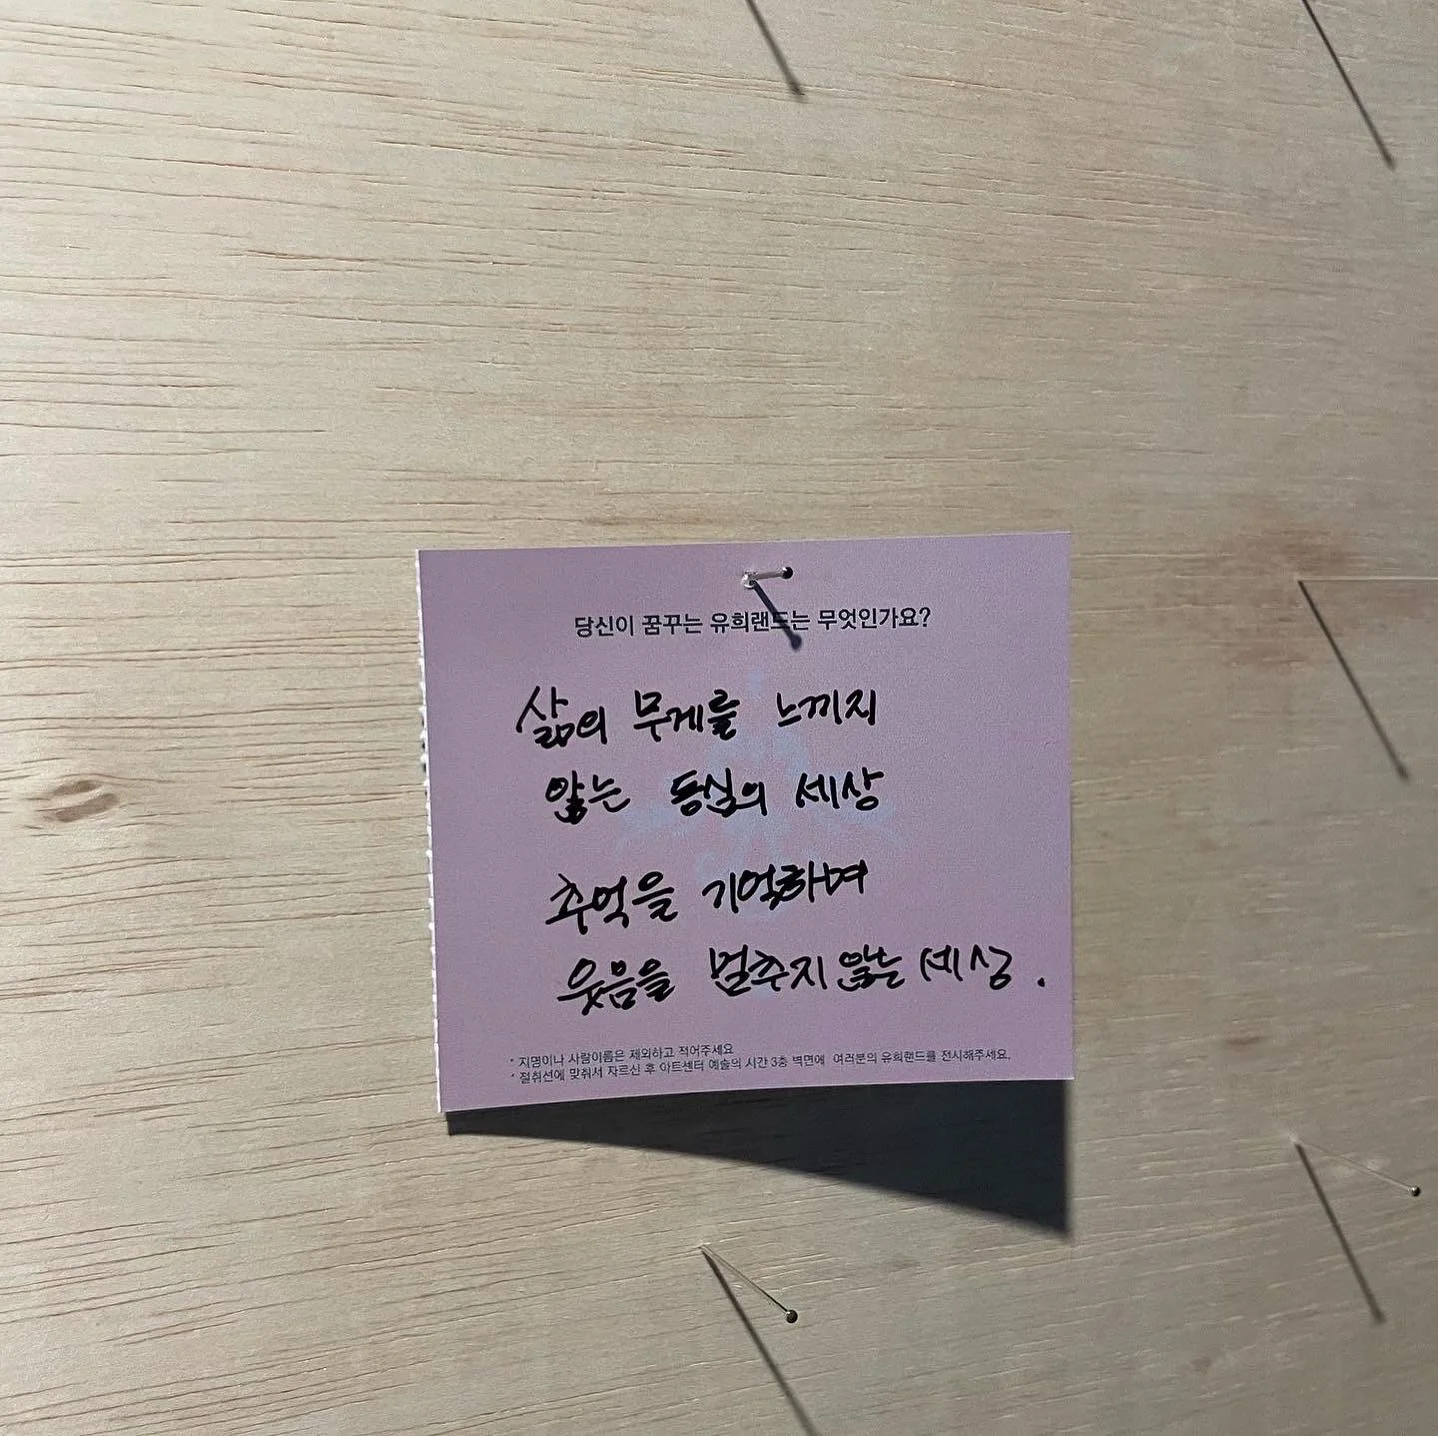 당신이 꿈꾸는 유희랜드는 무엇인가요?
삶의 무게를 느끼지
않는 동심의 세상
추억을 기억하며
웃음을 멈추지 않는 세상.
* 지명이나 사람이름은 제외하고 적어주세요
* 절취선에 맞춰서 자르신 후 아트센터 예술의 시간 3층 벽면에 여러분의 유희랜드를 전시해주세요.